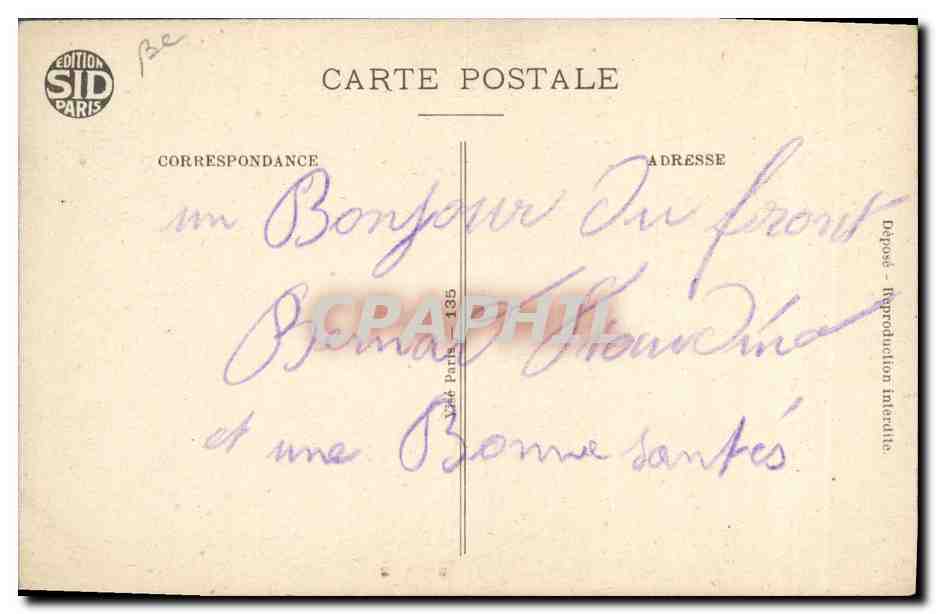 EDITION
SID
PARIS
Be
CARTE POSTALE
CORRESPONDANCE
ADRESSE
un Bonjour Du front
Bernat
et une Bonne santés
Visé Paris 135
Déposé - Reproduction interdite.
CPAPHIL